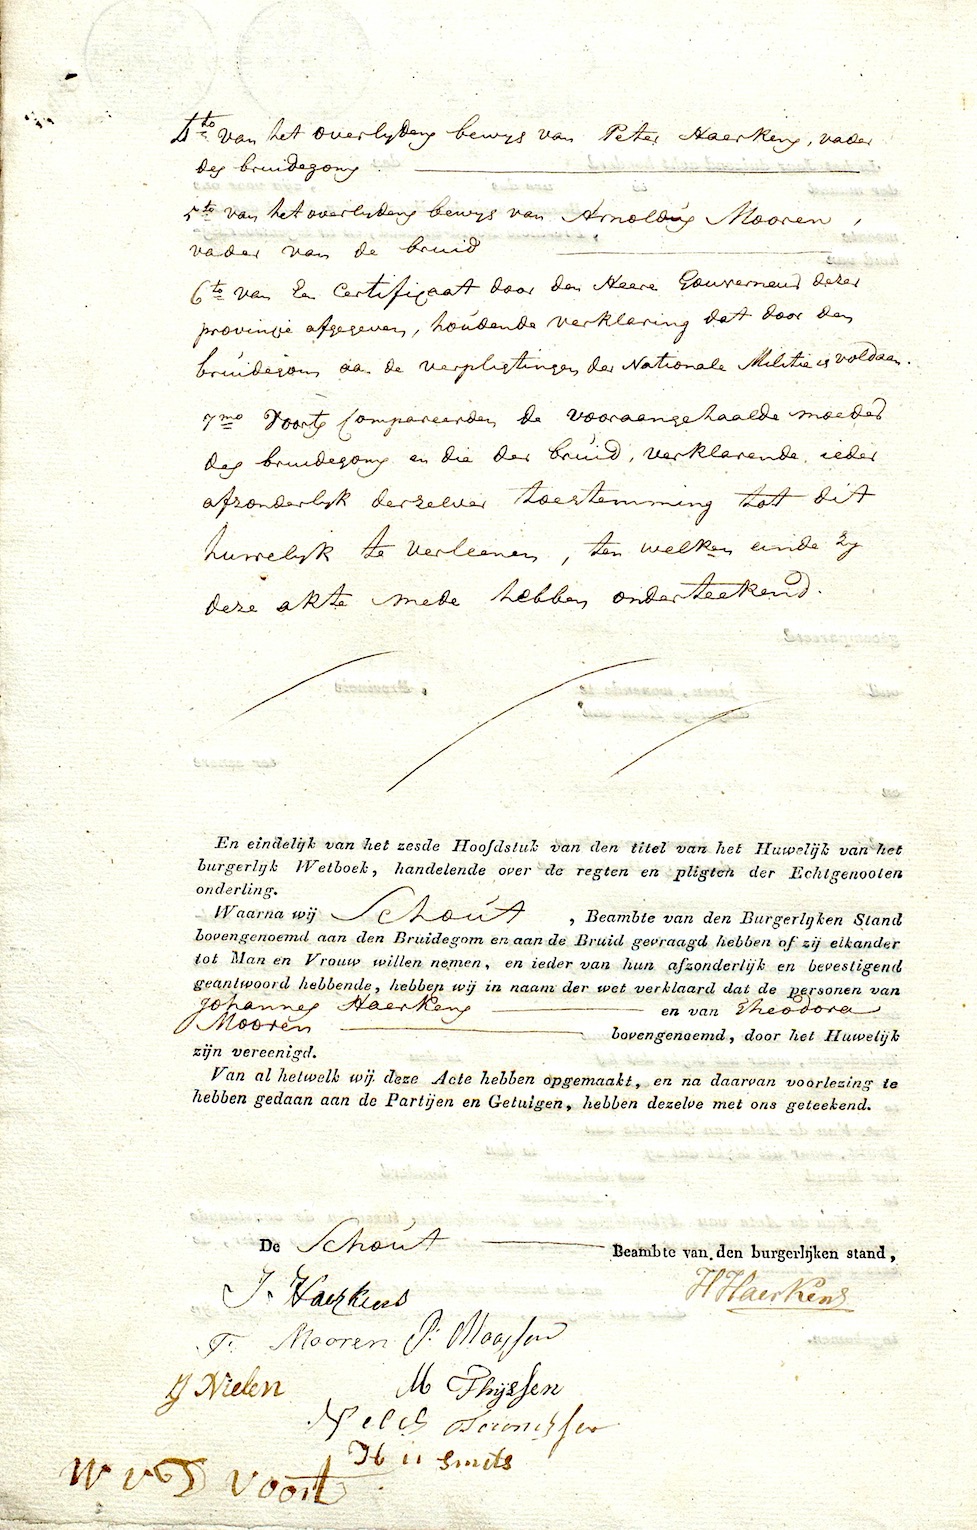 4to van het overlydens bewys van Peter Haerkens, vader
des bruidegoms
5to van het overlydens bewys van Arnoldus Mooren,
vader van de bruid
6to van Een Certificaat door den Heere Gouverneur dezer
provincie afgegeven, houdende verklaring dat door den
bruidegom aan de verpligtingen der Nationale Militie is voldaan.
7mo Voorts Compareerden de vooraengehaalde moeder
des bruidegoms en die der bruid, verklarende ieder
afzonderlyk derzelver toestemming tot dit
huwelyk te verleenen, ten welken einde zy
deze akte mede hebben onderteekend.
En eindelijk van het zesde Hoofdstuk van den titel van het Huwelijk van het
burgerlijk Wetboek, handelende over de regten en pligten der Echtgenooten
onderling.
Waarna wij Schout, Beambte van den Burgerlijken Stand
bovengenoemd aan den Bruidegom en aan de Bruid gevraagd hebben of zij elkander
tot Man en Vrouw willen nemen, en ieder van hun afzonderlijk en bevestigend
geantwoord hebbende, hebben wij in naam der wet verklaard dat de personen van
Johannes Haerkens en van Theodora
Mooren bovengenoemd, door het Huwelijk
zijn vereenigd.
Van al hetwelk wij deze Acte hebben opgemaakt, en na daarvan voorlezing te
hebben gedaan aan de Partijen en Getuigen, hebben dezelve met ons geteekend.
De Schout Beambte van den burgerlijken stand,
J. Haerkens H Haerkens
T. Mooren P. Maassen
J Nielen M Thijssen
Nelis
H Smits
W v D Voort